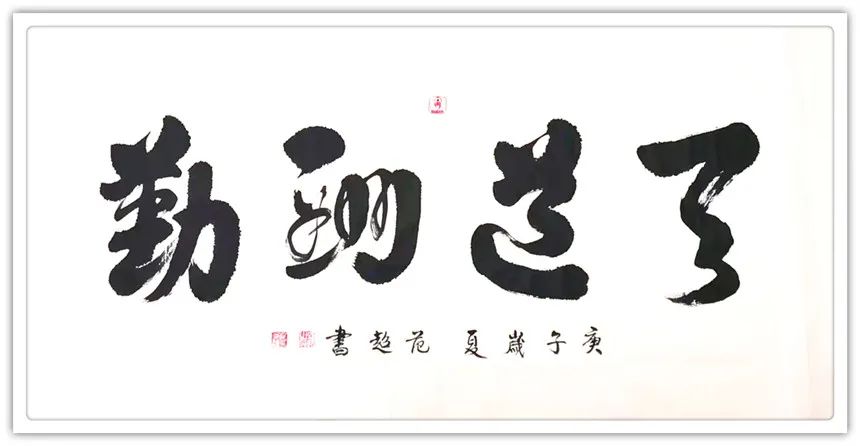 天道酬勤
庚子歲夏 范超書